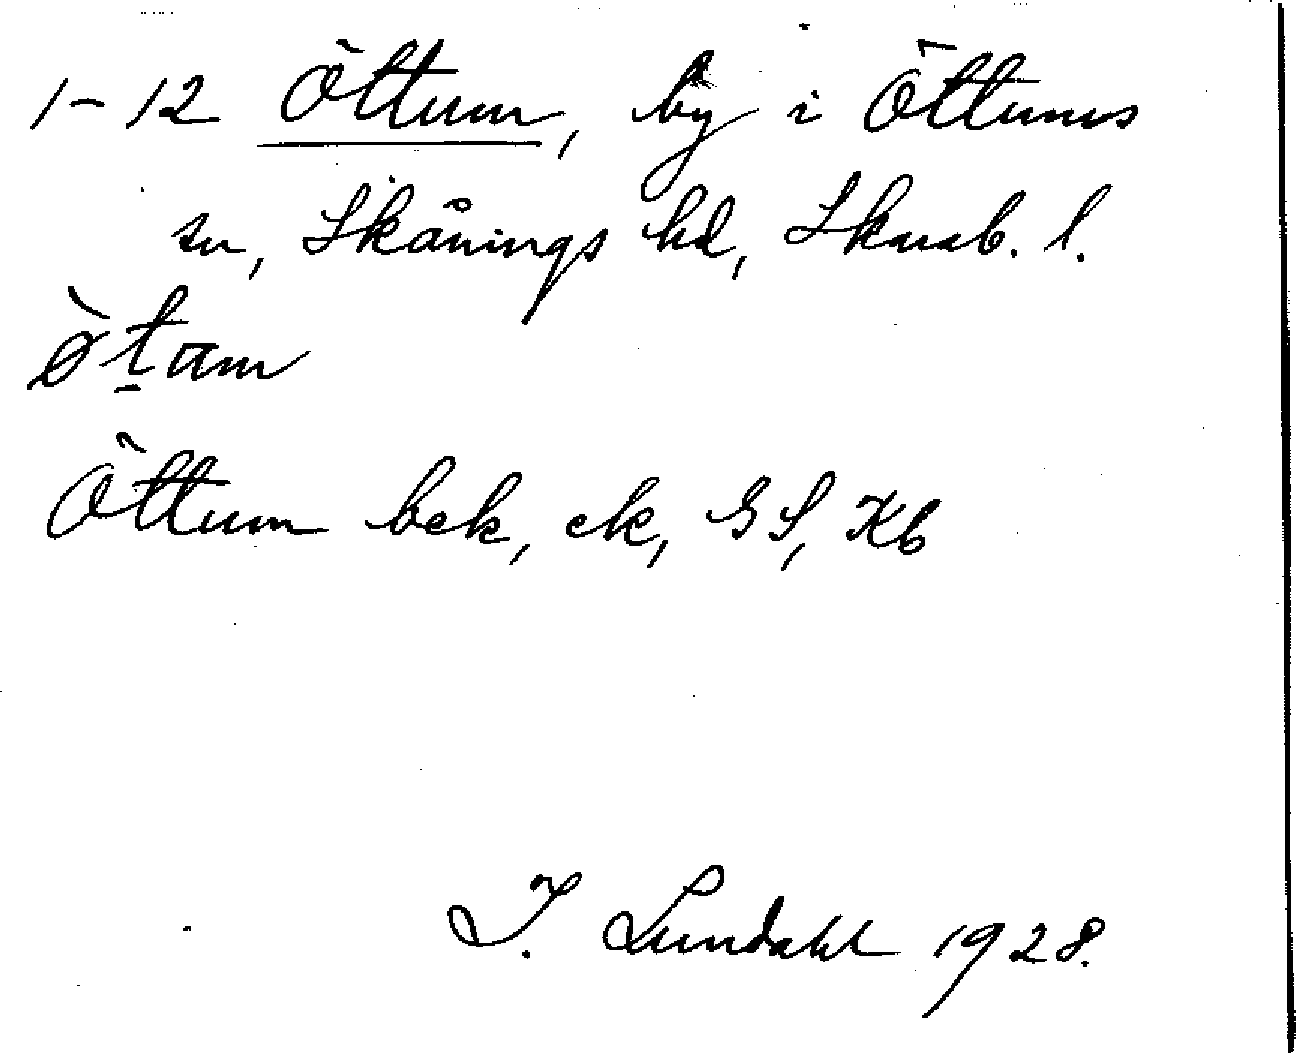 1-12 Öttum, by i Öttums
sn, Skånings hd, Skarab. l.
ø̀t̠am
Öttum bek, ek, GS, Kb
I. Lundahl 1928.